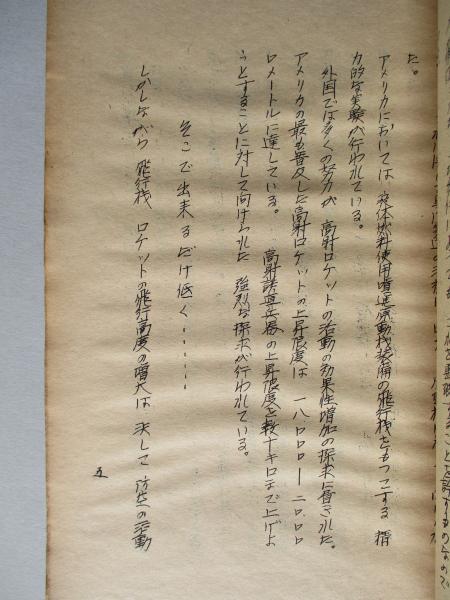 た。
アメリカにおいては 液体燃料使用噴進原動機装備の飛行機をもつてする 精
力的な実験が行われている。
外国では多くの努力が 高射ロケットの活動の効果性増加の探求に費された。
アメリカの最も普及した高射ロケットの上昇限度は 一八〇〇〇―二〇〇〇〇
メートルに達している。 高射誘導兵器の上昇限度を数十キロまで上げよ
うとすることに対して向けられた 強烈な探求が行われている。
そこで出来るだけ低く……
しかしながら 飛行機 ロケットの飛行高度の増大は 決して 防空の活動
五